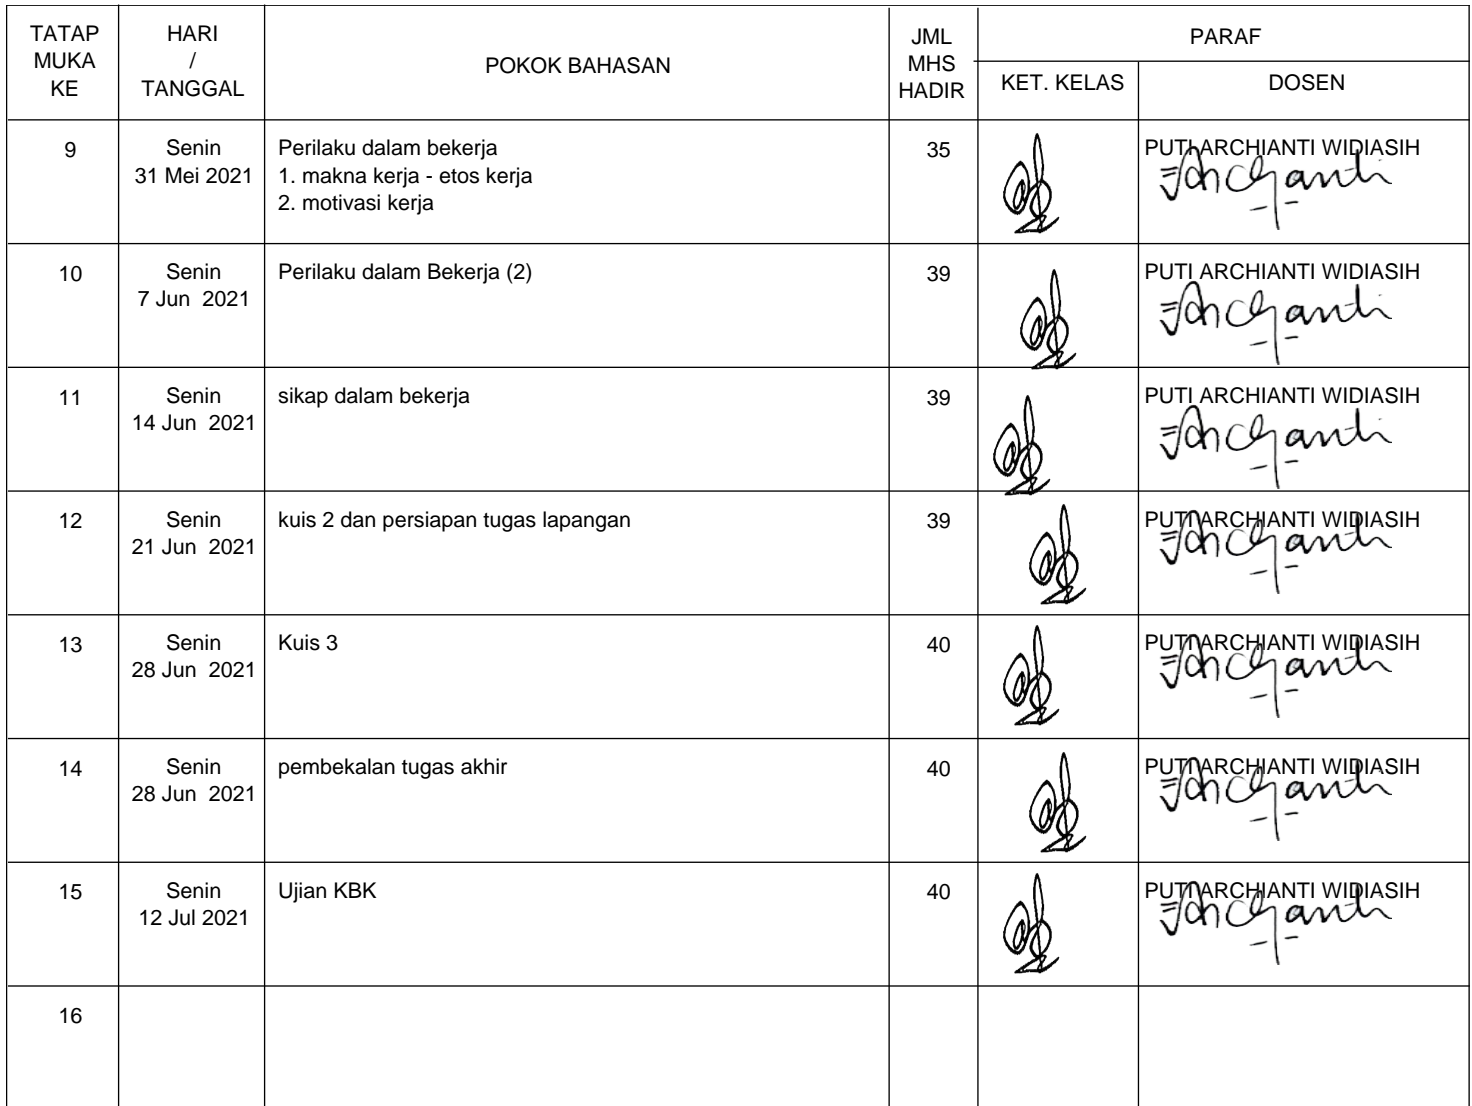 TATAP MUKA KE
HARI / TANGGAL
POKOK BAHASAN
JML MHS HADIR
PARAF
KET. KELAS
DOSEN
9
Senin
31 Mei 2021
Perilaku dalam bekerja
1. makna kerja - etos kerja
2. motivasi kerja
35
PUTI ARCHIANTI WIDIASIH
10
Senin
7 Jun 2021
Perilaku dalam Bekerja (2)
39
PUTI ARCHIANTI WIDIASIH
11
Senin
14 Jun 2021
sikap dalam bekerja
39
PUTI ARCHIANTI WIDIASIH
12
Senin
21 Jun 2021
kuis 2 dan persiapan tugas lapangan
39
PUTI ARCHIANTI WIDIASIH
13
Senin
28 Jun 2021
Kuis 3
40
PUTI ARCHIANTI WIDIASIH
14
Senin
28 Jun 2021
pembekalan tugas akhir
40
PUTI ARCHIANTI WIDIASIH
15
Senin
12 Jul 2021
Ujian KBK
40
PUTI ARCHIANTI WIDIASIH
16